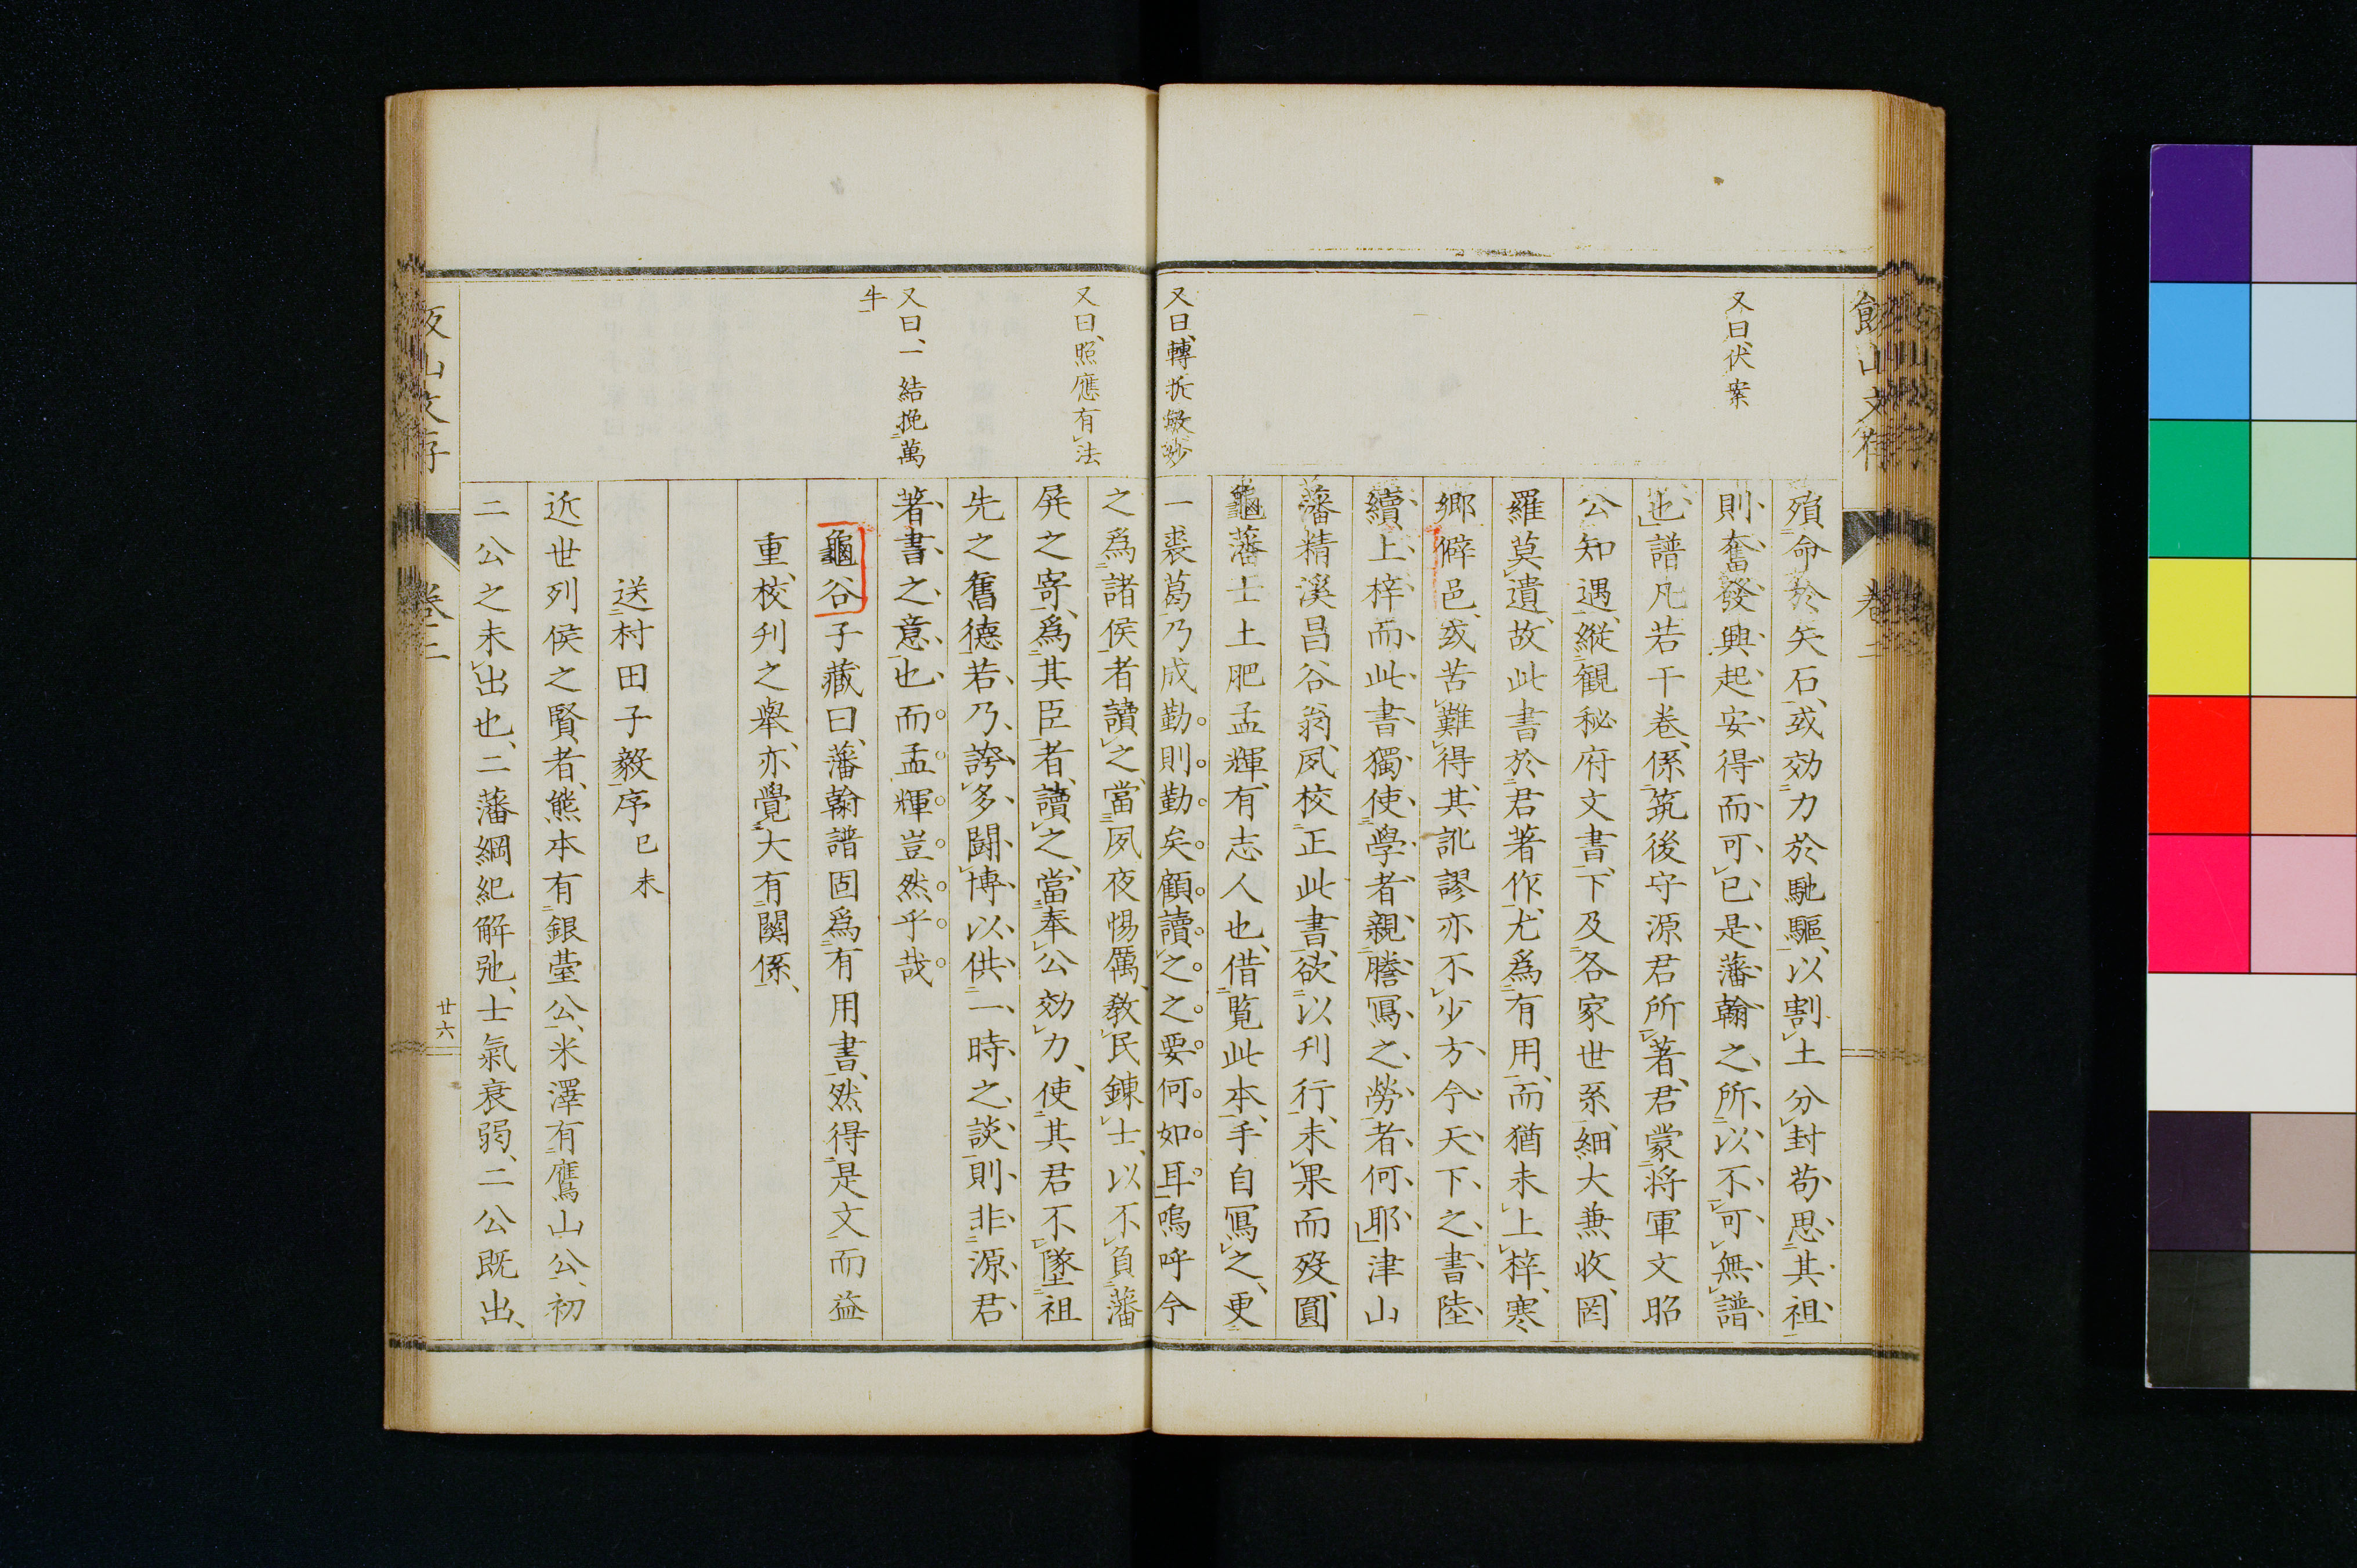 飯山文存
卷二
又曰、伏案
殞命於矢石、或効力於馳驅、以割土分封苟思其祖
則奮發興起、安得而可已、是藩翰之所以不可無譜
也、譜凡若干卷、係筑後守源君所著、君蒙将軍文昭
公知遇、縱觀秘府文書、下及各家世系、細大兼收、罔
羅莫遺、故此書於君著作、尤爲有用、而猶未上梓、寒
郷僻邑、或苦難得、其訛謬亦不少、方今天下之書、陸
續上梓、而此書獨使學者親謄寫之勞者何耶、津山
藩精溪昌谷翁、夙校正此書、欲以刊行、未果而歿、圓
龜藩士土肥孟輝、有志人也、借覧此本、手自寫之、更
又曰、轉折敏妙
一裘葛乃成勤則勤矣、顧讀之之要何如耳、嗚呼今
又曰、照應有法
之爲諸侯者讀之、當夙夜惕厲、教民錬士、以不負藩
屏之寄、爲其臣者、讀之、當奉公効力、使其君不墜祖
先之舊德、若乃誇多鬪博、以供一時之談、則非源君
又曰、一結挽萬
牛
著書之意也、而孟輝豈然乎哉
龜谷子藏曰、藩翰譜固爲有用書、然得是文而益
重、校刊之舉、亦覺大有關係、
送村田子毅序 己未
近世列侯之賢者、熊本有銀臺公、米澤有鷹山公、初
二公之未出也、二藩綱紀解弛、士氣衰弱、二公既出、
飯山文存
卷二
廿六